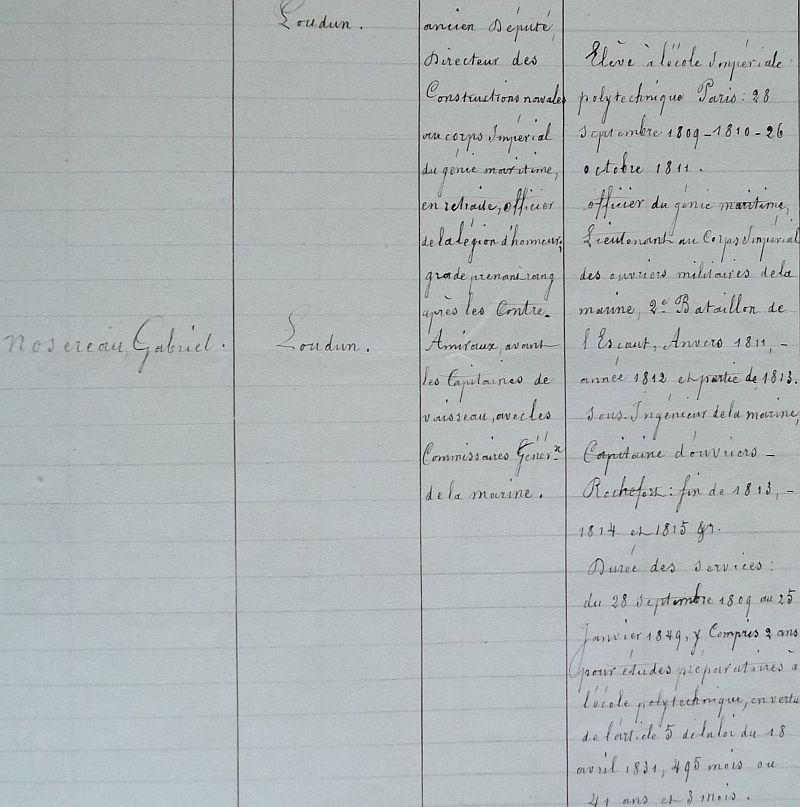 Nosereau, Gabriel.
Loudun.
Loudun.
ancien Député,
Directeur des
Constructions navales
au corps Impérial
du génie maritime,
en retraite, officier
de la légion d'honneur,
grade prenant rang
après les Contre-
Amiraux, avant
les Capitaines de
vaisseau, avec les
Commissaires Génér.x
de la marine.
Elève à l'école Impériale
polytechnique Paris: 28
septembre 1809-1810-26
octobre 1811.
officier du génie maritime,
Lieutenant au Corps Impérial
des ouvriers militaires de la
marine, 2e Bataillon de
l'Escaut, Anvers 1811, -
année 1812 et partie de 1813.
sous-Ingénieur de la marine,
Capitaine d'ouvriers -
Rochefort: fin de 1813, -
1814 et 1815 &.
Durée des services:
du 28 septembre 1809 au 25
Janvier 1849, y Compris 2 ans
pour études préparatoires à
l'école polytechnique, en vertu
de l'article 5 de la loi du 18
avril 1831, 495 mois ou
41 ans et 3 mois.